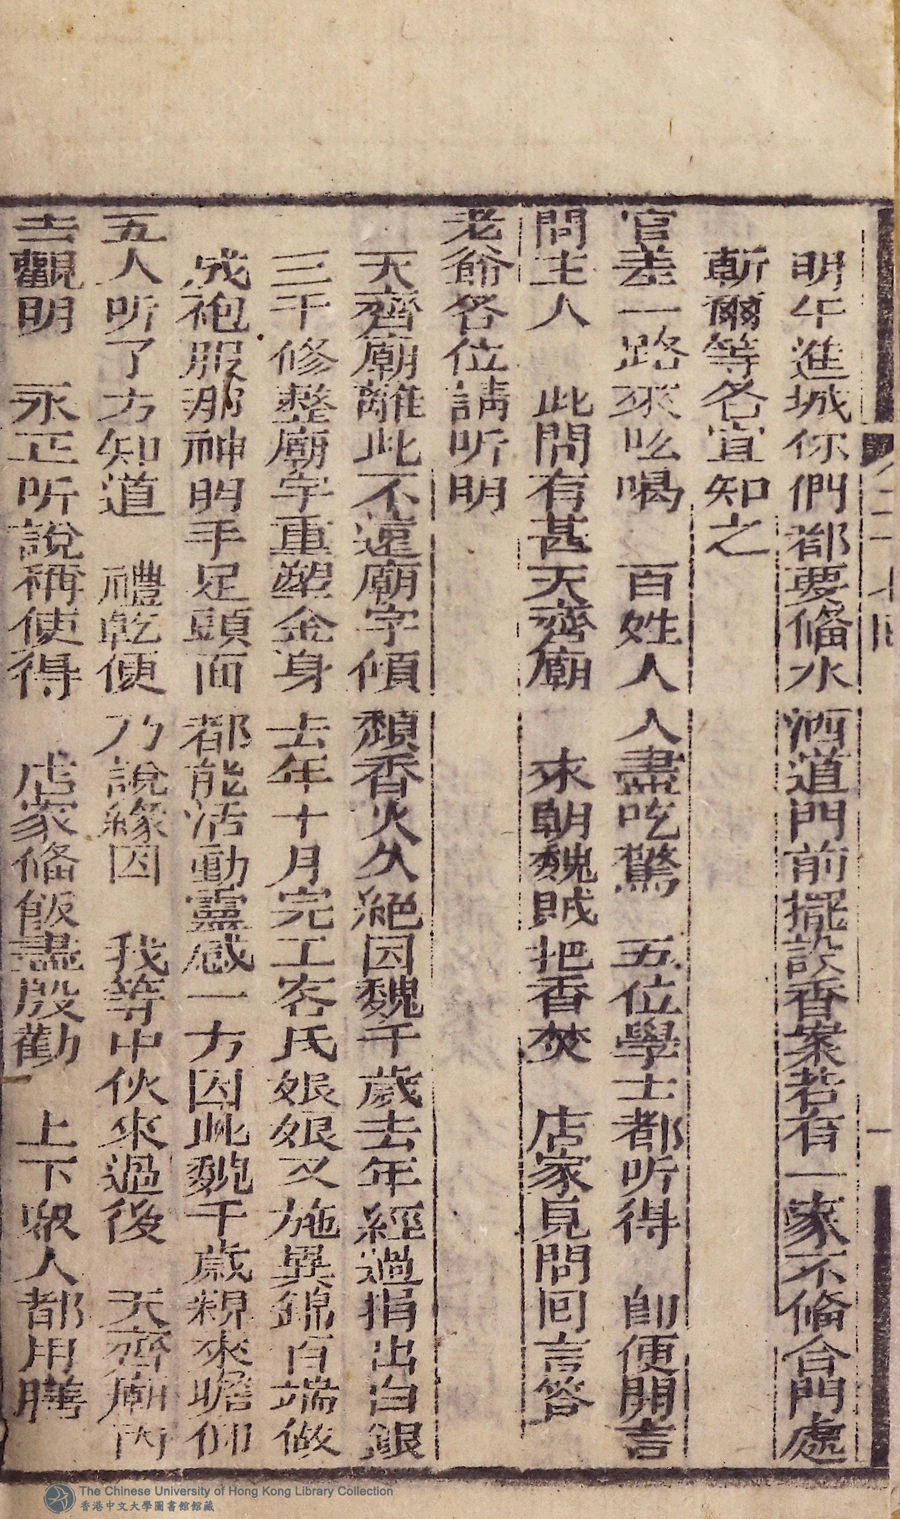 明午進城你們都要俻水洒道門前擺設香案若有一家不俻合門處
斬爾等各宜知之
官差一路來吆喝　百姓人人盡吃驚　五位學士都听得　卽便開言
問主人　此問有甚天齊廟　來朝魏賊把香焚　店家見問囘言答
老爺各位請听明
天齊廟離此不遠廟宇傾頽香火久絕因魏千歲去年經過捐出白銀
三千修整廟宇重塑金身去年十月完工客氏娘娘又施異錦百端做
成袍服那神明手足頭面都能活動靈感一方因此魏千歲親來瞻仰
五人听了方知道　禮乾便乃說緣因　我等中伙來過後　天齊廟內
去觀明　永正听說稱使得　店家俻飯盡殷勸　上下衆人都用膳
The Chinese University of Hong Kong Library Collection
香港中文大學圖書館館藏